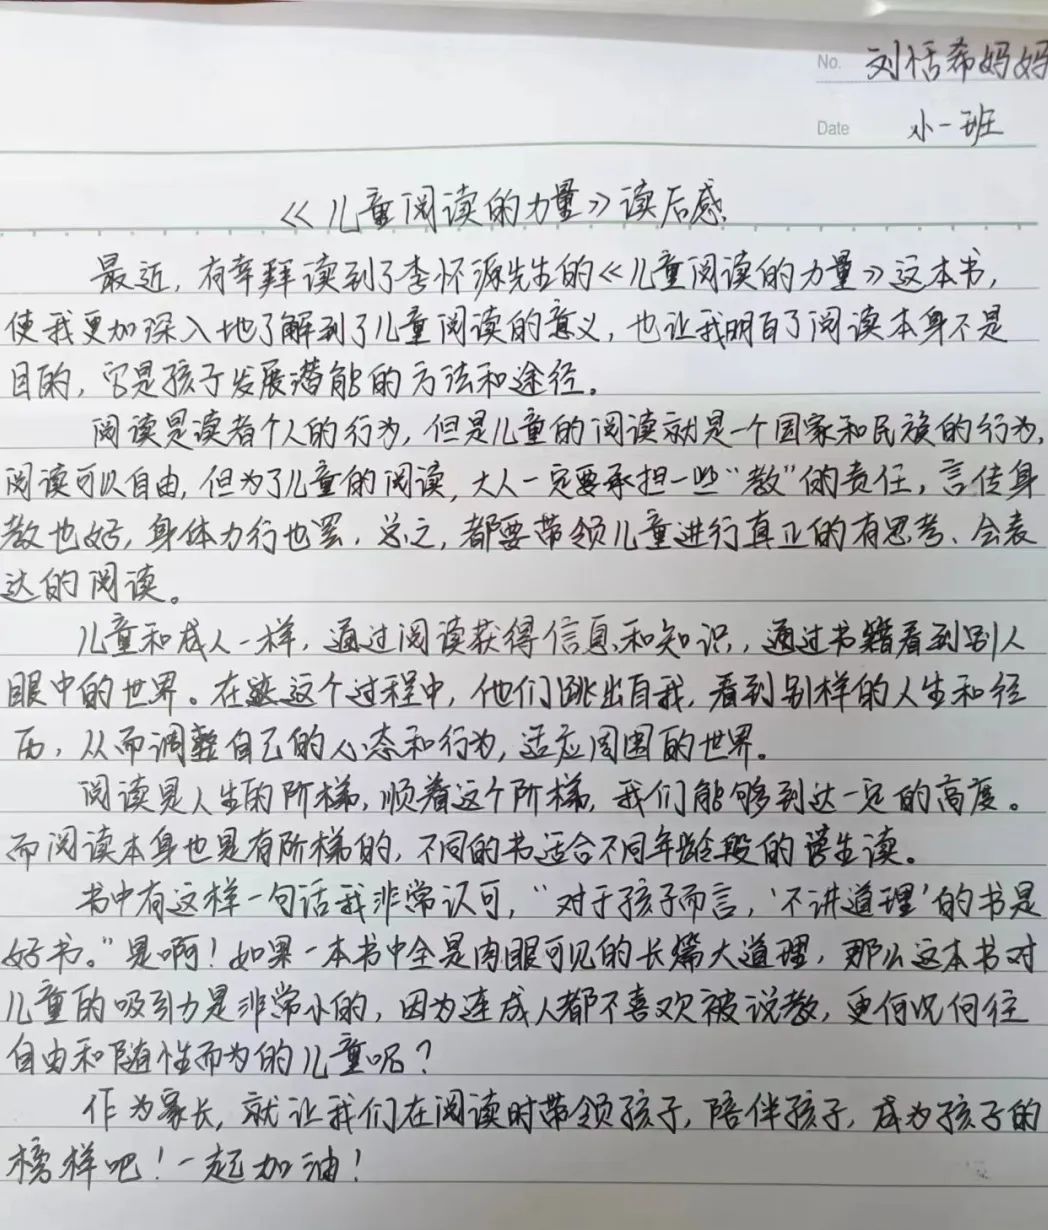 No. 刘恬希妈妈
Date 小一班
《儿童阅读的力量》读后感
最近,有幸拜读到了李怀源先生的《儿童阅读的力量》这本书,
使我更加深入地了解到了儿童阅读的意义,也让我明白了阅读本身不是
目的,它是孩子发展潜能的方法和途径。
阅读是读者个人的行为,但是儿童的阅读就是一个国家和民族的行为,
阅读可以自由,但为了儿童的阅读,大人一定要承担一些“教”的责任,言传身
教也好,身体力行也罢,总之,都要带领儿童进行真正的有思考、会表
达的阅读。
儿童和成人一样,通过阅读获得信息和知识,通过书籍看到别人
眼中的世界。在这个过程中,他们跳出自我,看到别样的人生和经
历,从而调整自己的心态和行为,适应周围的世界。
阅读是人生的阶梯,顺着这个阶梯,我们能够到达一定的高度。
而阅读本身也是有阶梯的,不同的书适合不同年龄段的学生读。
书中有这样一句话我非常认可,“对于孩子而言,‘不讲道理’的书是
好书。”是啊!如果一本书中全是肉眼可见的长篇大道理,那么这本书对
儿童的吸引力是非常小的,因为连成人都不喜欢被说教,更何况向往
自由和随性而为的儿童呢?
作为家长,就让我们在阅读时带领孩子,陪伴孩子,成为孩子的
榜样吧!一起加油!